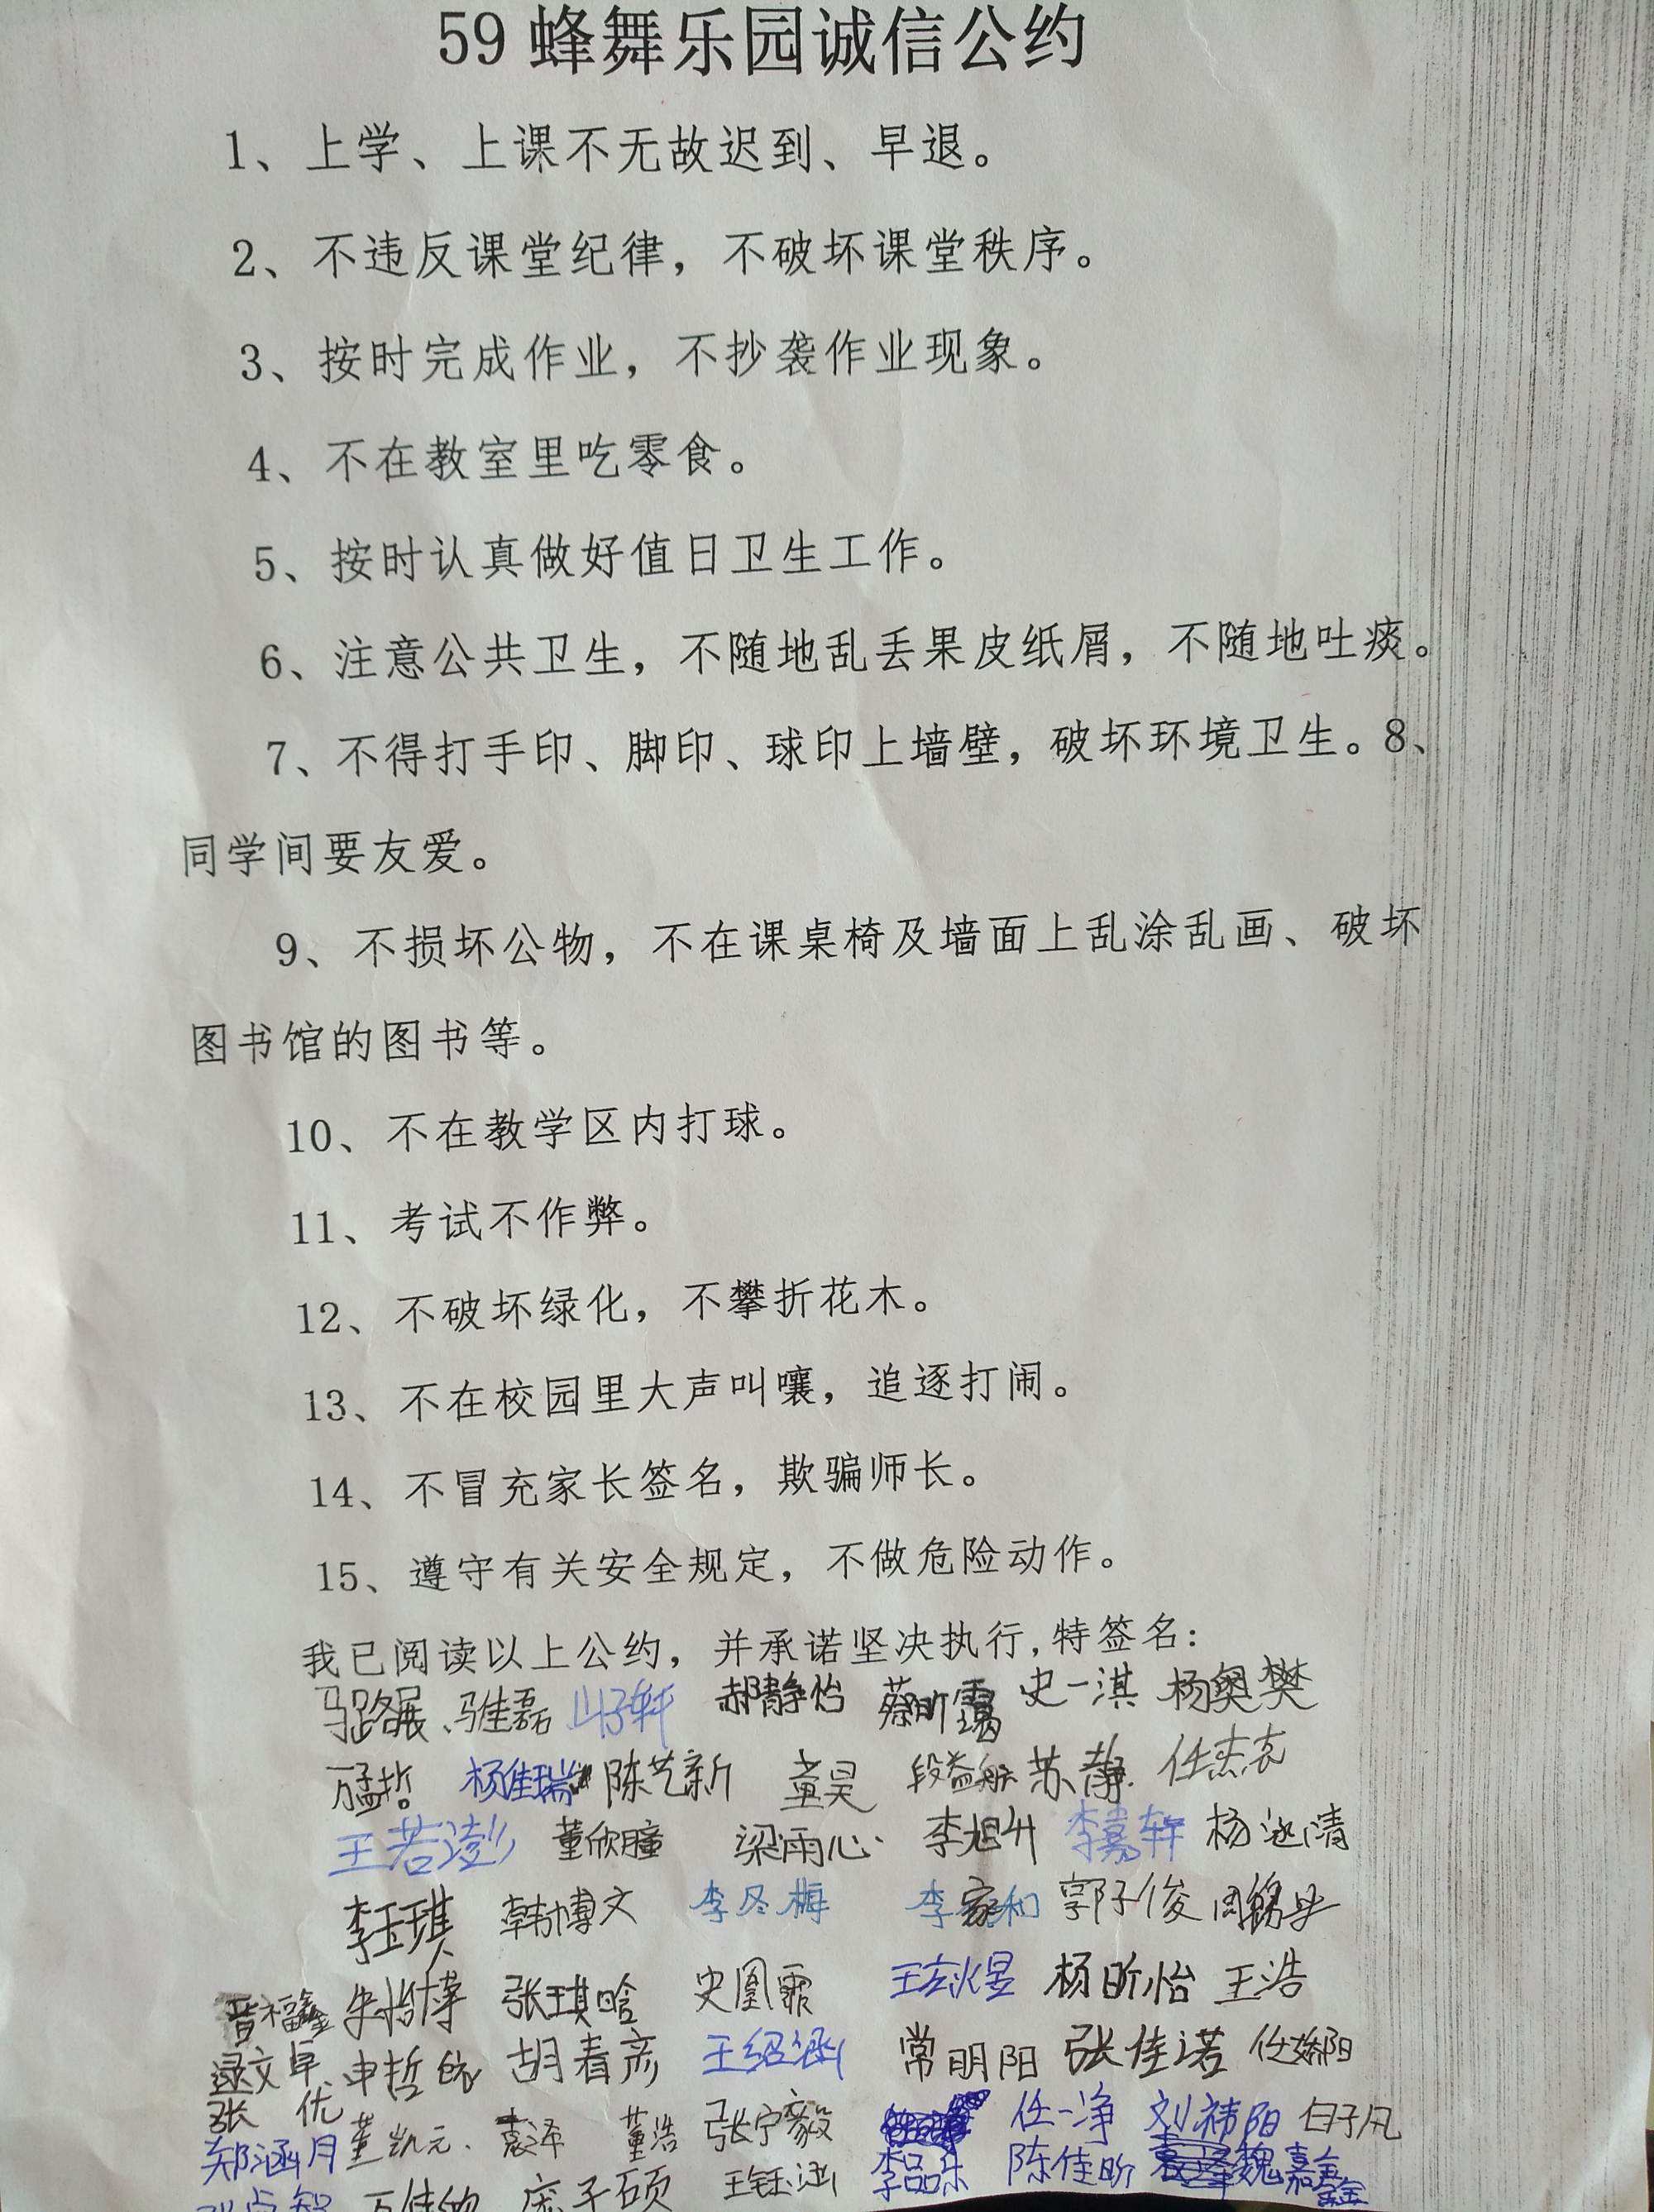 59蜂舞乐园诚信公约
1、上学、上课不无故迟到、早退。
2、不违反课堂纪律，不破坏课堂秩序。
3、按时完成作业，不抄袭作业现象。
4、不在教室里吃零食。
5、按时认真做好值日卫生工作。
6、注意公共卫生，不随地乱丢果皮纸屑，不随地吐痰。
7、不得打手印、脚印、球印上墙壁，破坏环境卫生。8、
同学间要友爱。
9、不损坏公物，不在课桌椅及墙面上乱涂乱画、破坏
图书馆的图书等。
10、不在教学区内打球。
11、考试不作弊。
12、不破坏绿化，不攀折花木。
13、不在校园里大声叫嚷，追逐打闹。
14、不冒充家长签名，欺骗师长。
15、遵守有关安全规定，不做危险动作。
我已阅读以上公约，并承诺坚决执行,特签名：
马路展 马佳磊 郝静怡 史一淇 杨奥樊
杨佳瑞 陈艺新 童昊 段益航 苏静
王若澎 董欣瞳 梁雨心 李旭升 李嘉轩
李玉琪 韩博文 李冬梅 李家和 郭子俊
晋福鑫 朱怡博 张琪晗 史凰霏 杨昕怡 王浩
逯文卓 胡春彦 王绍涵 常明阳 张佳诺 任娇阳
张优
郑涵月 董凯元 袁泽 董浩 张宁毅 任一净 刘祎阳 白子凡
庞子硕 王钰涵 李品乐 陈佳昕 魏嘉鑫